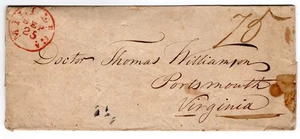 75
Doctor Thomas Williamson
Portsmouth
Virginia